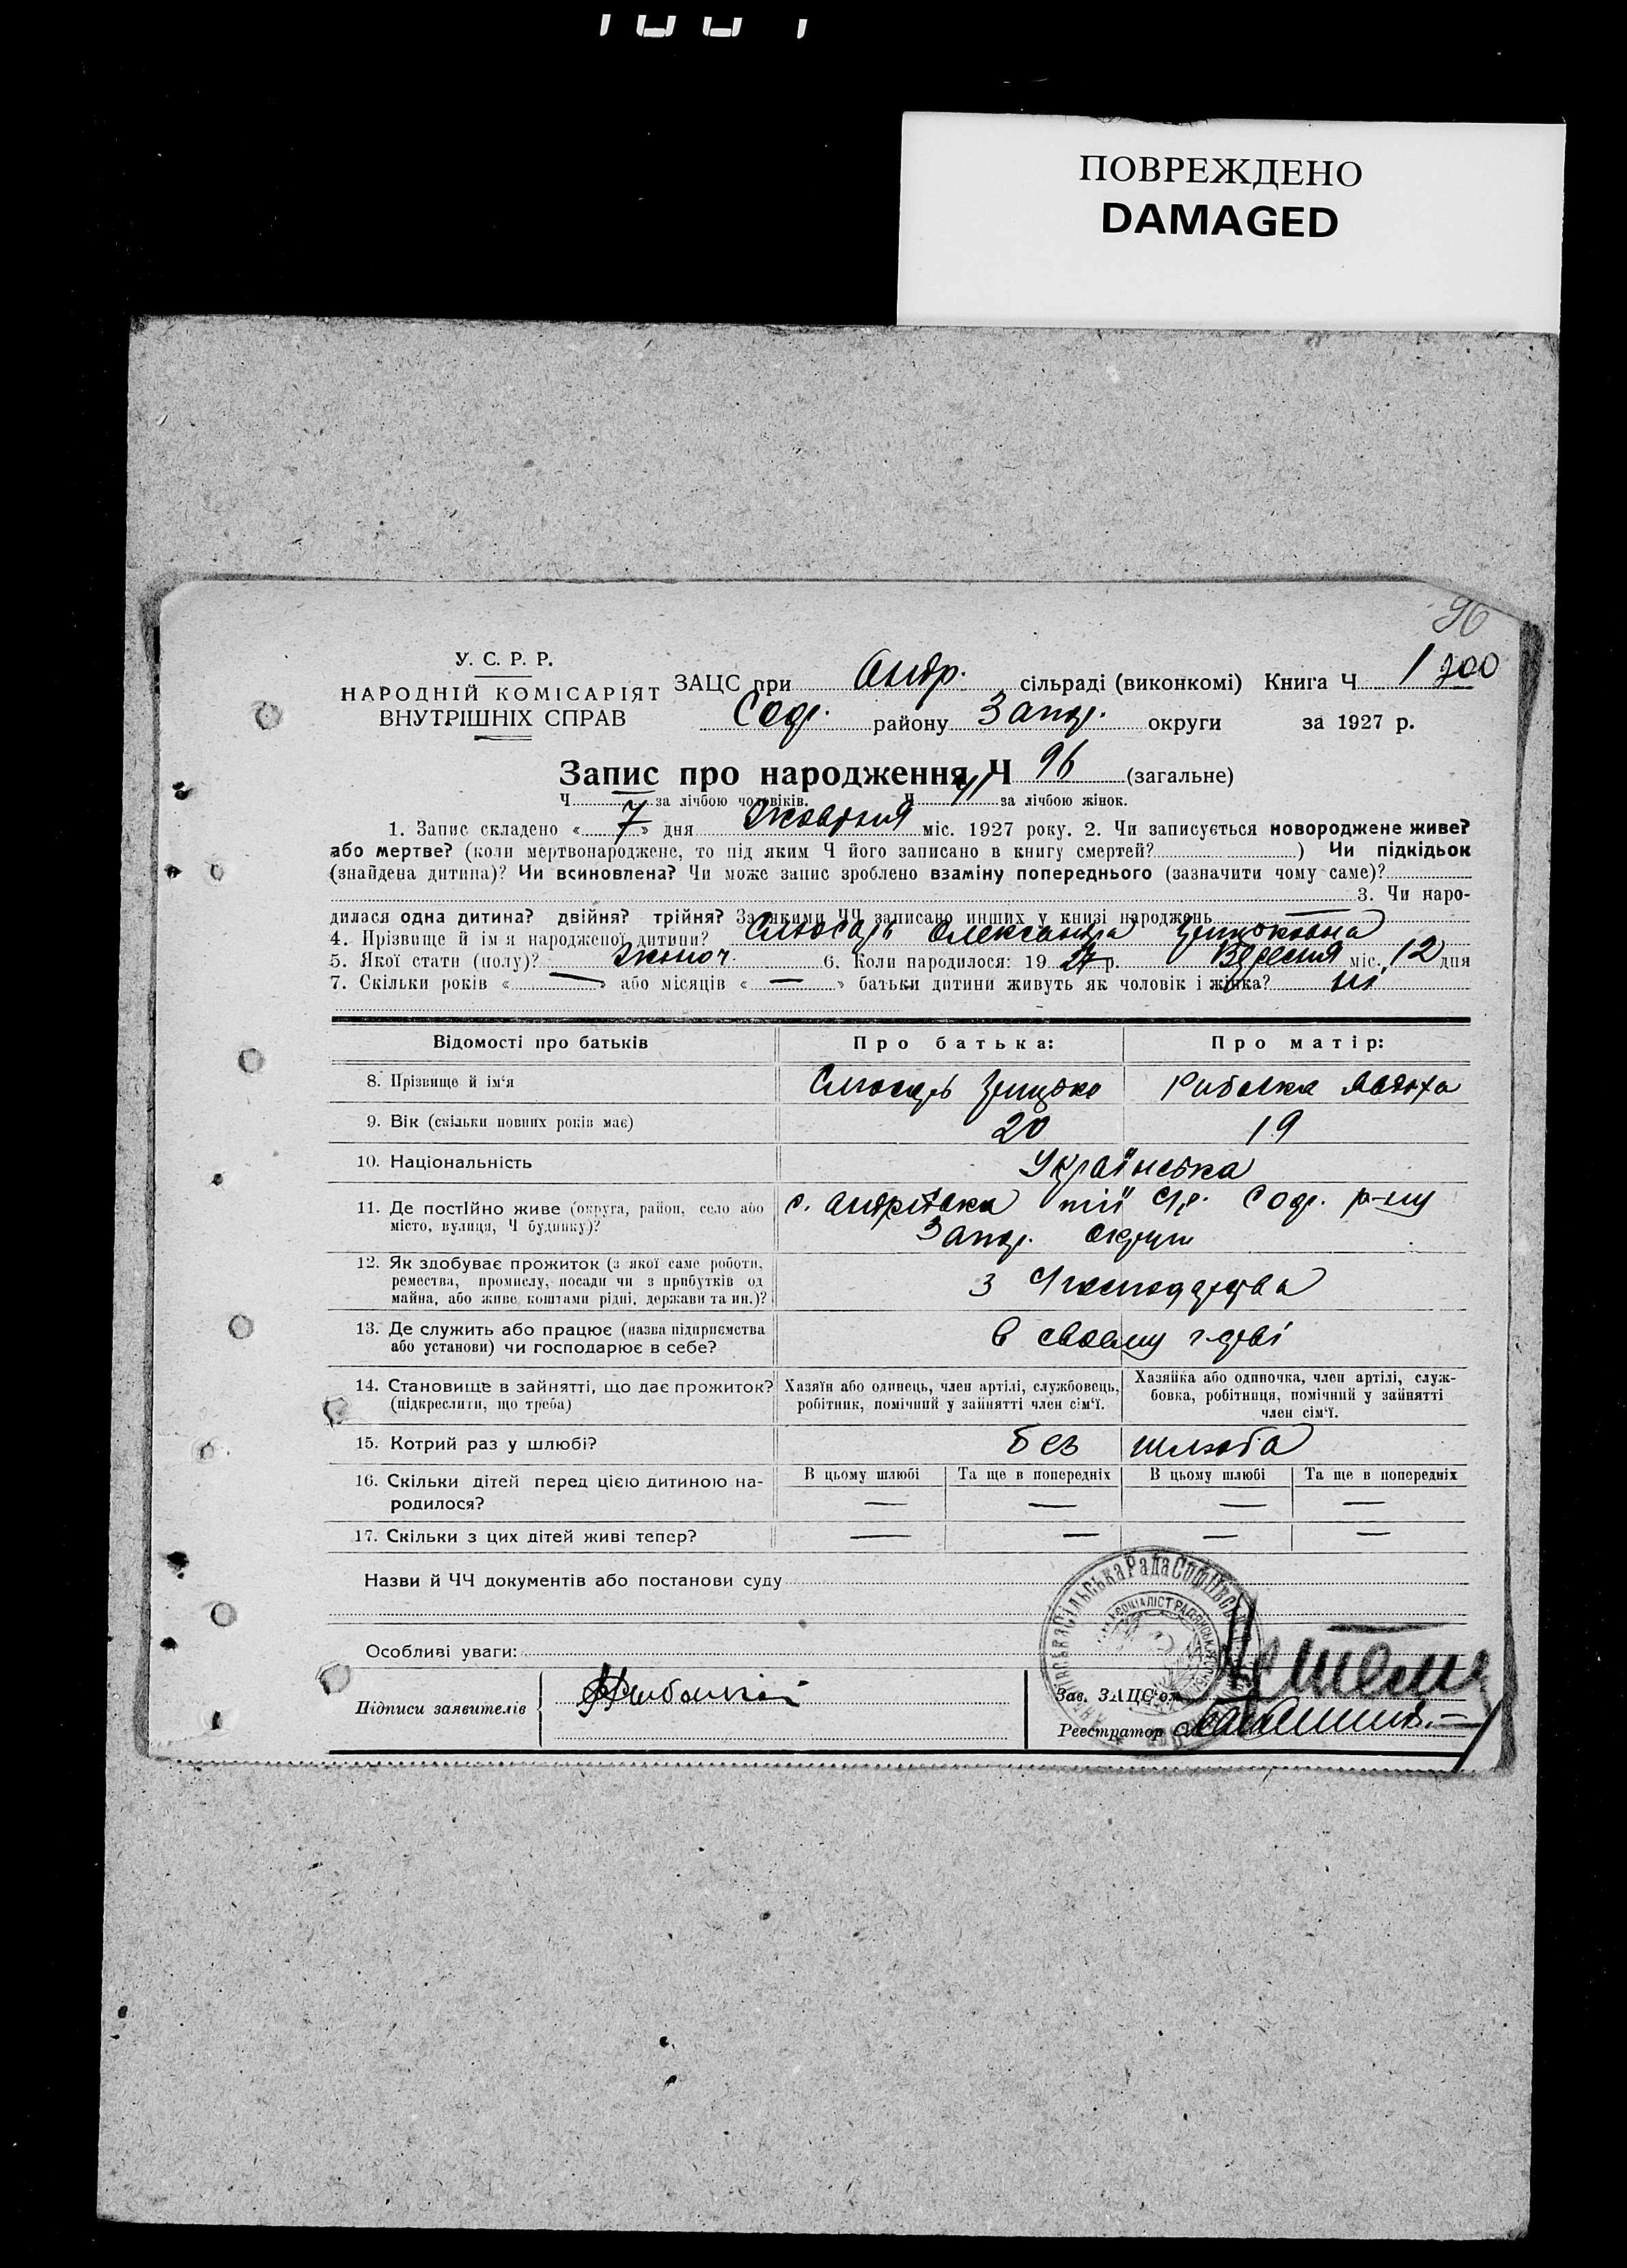 ПОВРЕЖДЕНО
DAMAGED
96
У. С. Р. Р.
НАРОДНІЙ КОМІСАРІЯТ
ВНУТРІШНІХ СПРАВ
ЗАЦС при Андр. сільраді (виконкомі) Книга Ч 1
Соф. району Запор. округи за 1927 р.
Запис про народження Ч 96 (загальне)
Ч — за лічбою чоловіків. Ч 41 за лічбою жінок.
1. Запис складено « 7 » дня Жовтня міс. 1927 року. 2. Чи записується новороджене живе?
або мертве? (коли мертвонароджене, то під яким Ч його записано в книгу смертей? ) Чи підкідьок
(знайдена дитина)? Чи всиновлена? Чи може запис зроблено взаміну попереднього (зазначити чому саме)?
3. Чи наро-
дилася одна дитина? двійня? трійня? За якими ЧЧ записано инших у книзі народжень —
4. Прізвище й ім'я народженої дитини? Слюсарь Олександра
5. Якої стати (полу)? Жіноч. 6. Коли народилося: 19 27 р. Вересня міс. 12 дня
7. Скільки років « — » або місяців « — » батьки дитини живуть як чоловік і жінка? ні
Відомості про батьків Про батька: Про матір:
8. Прізвище й ім'я Слюсарь Рибалка
9. Вік (скільки повних років має) 20 19
10. Національність Українська
11. Де постійно живе (округа, район, село або
місто, вулиця, Ч будинку)?
с. Андріївка тії С/р. Соф. р-ну
Запор. округи
12. Як здобуває прожиток (з якої саме роботи,
ремества, промислу, посади чи з прибутків од
майна, або живе коштами рідні, держави та ин.)?
з С/господарства
13. Де служить або працює (назва підприємства
або установи) чи господарює в себе?
в своєму г-стві
14. Становище в зайнятті, що дає прожиток?
(підкреслити, що треба)
Хазяїн або одинець, член артілі, службовець,
робітник, помічний у зайнятті член сім'ї.
Хазяйка або одиночка, член артілі, служ-
бовка, робітниця, помічний у зайнятті
член сім'ї.
15. Котрий раз у шлюбі? без шлюба
16. Скільки дітей перед цією дитиною на-
родилося?
В цьому шлюбі Та ще в попередніх В цьому шлюбі Та ще в попередніх
— — — —
17. Скільки з цих дітей живі тепер? — — — —
Назви й ЧЧ документів або постанови суду
Особливі уваги:
Підписи заявителів
Зав. ЗАЦС'ом
Реєстратор